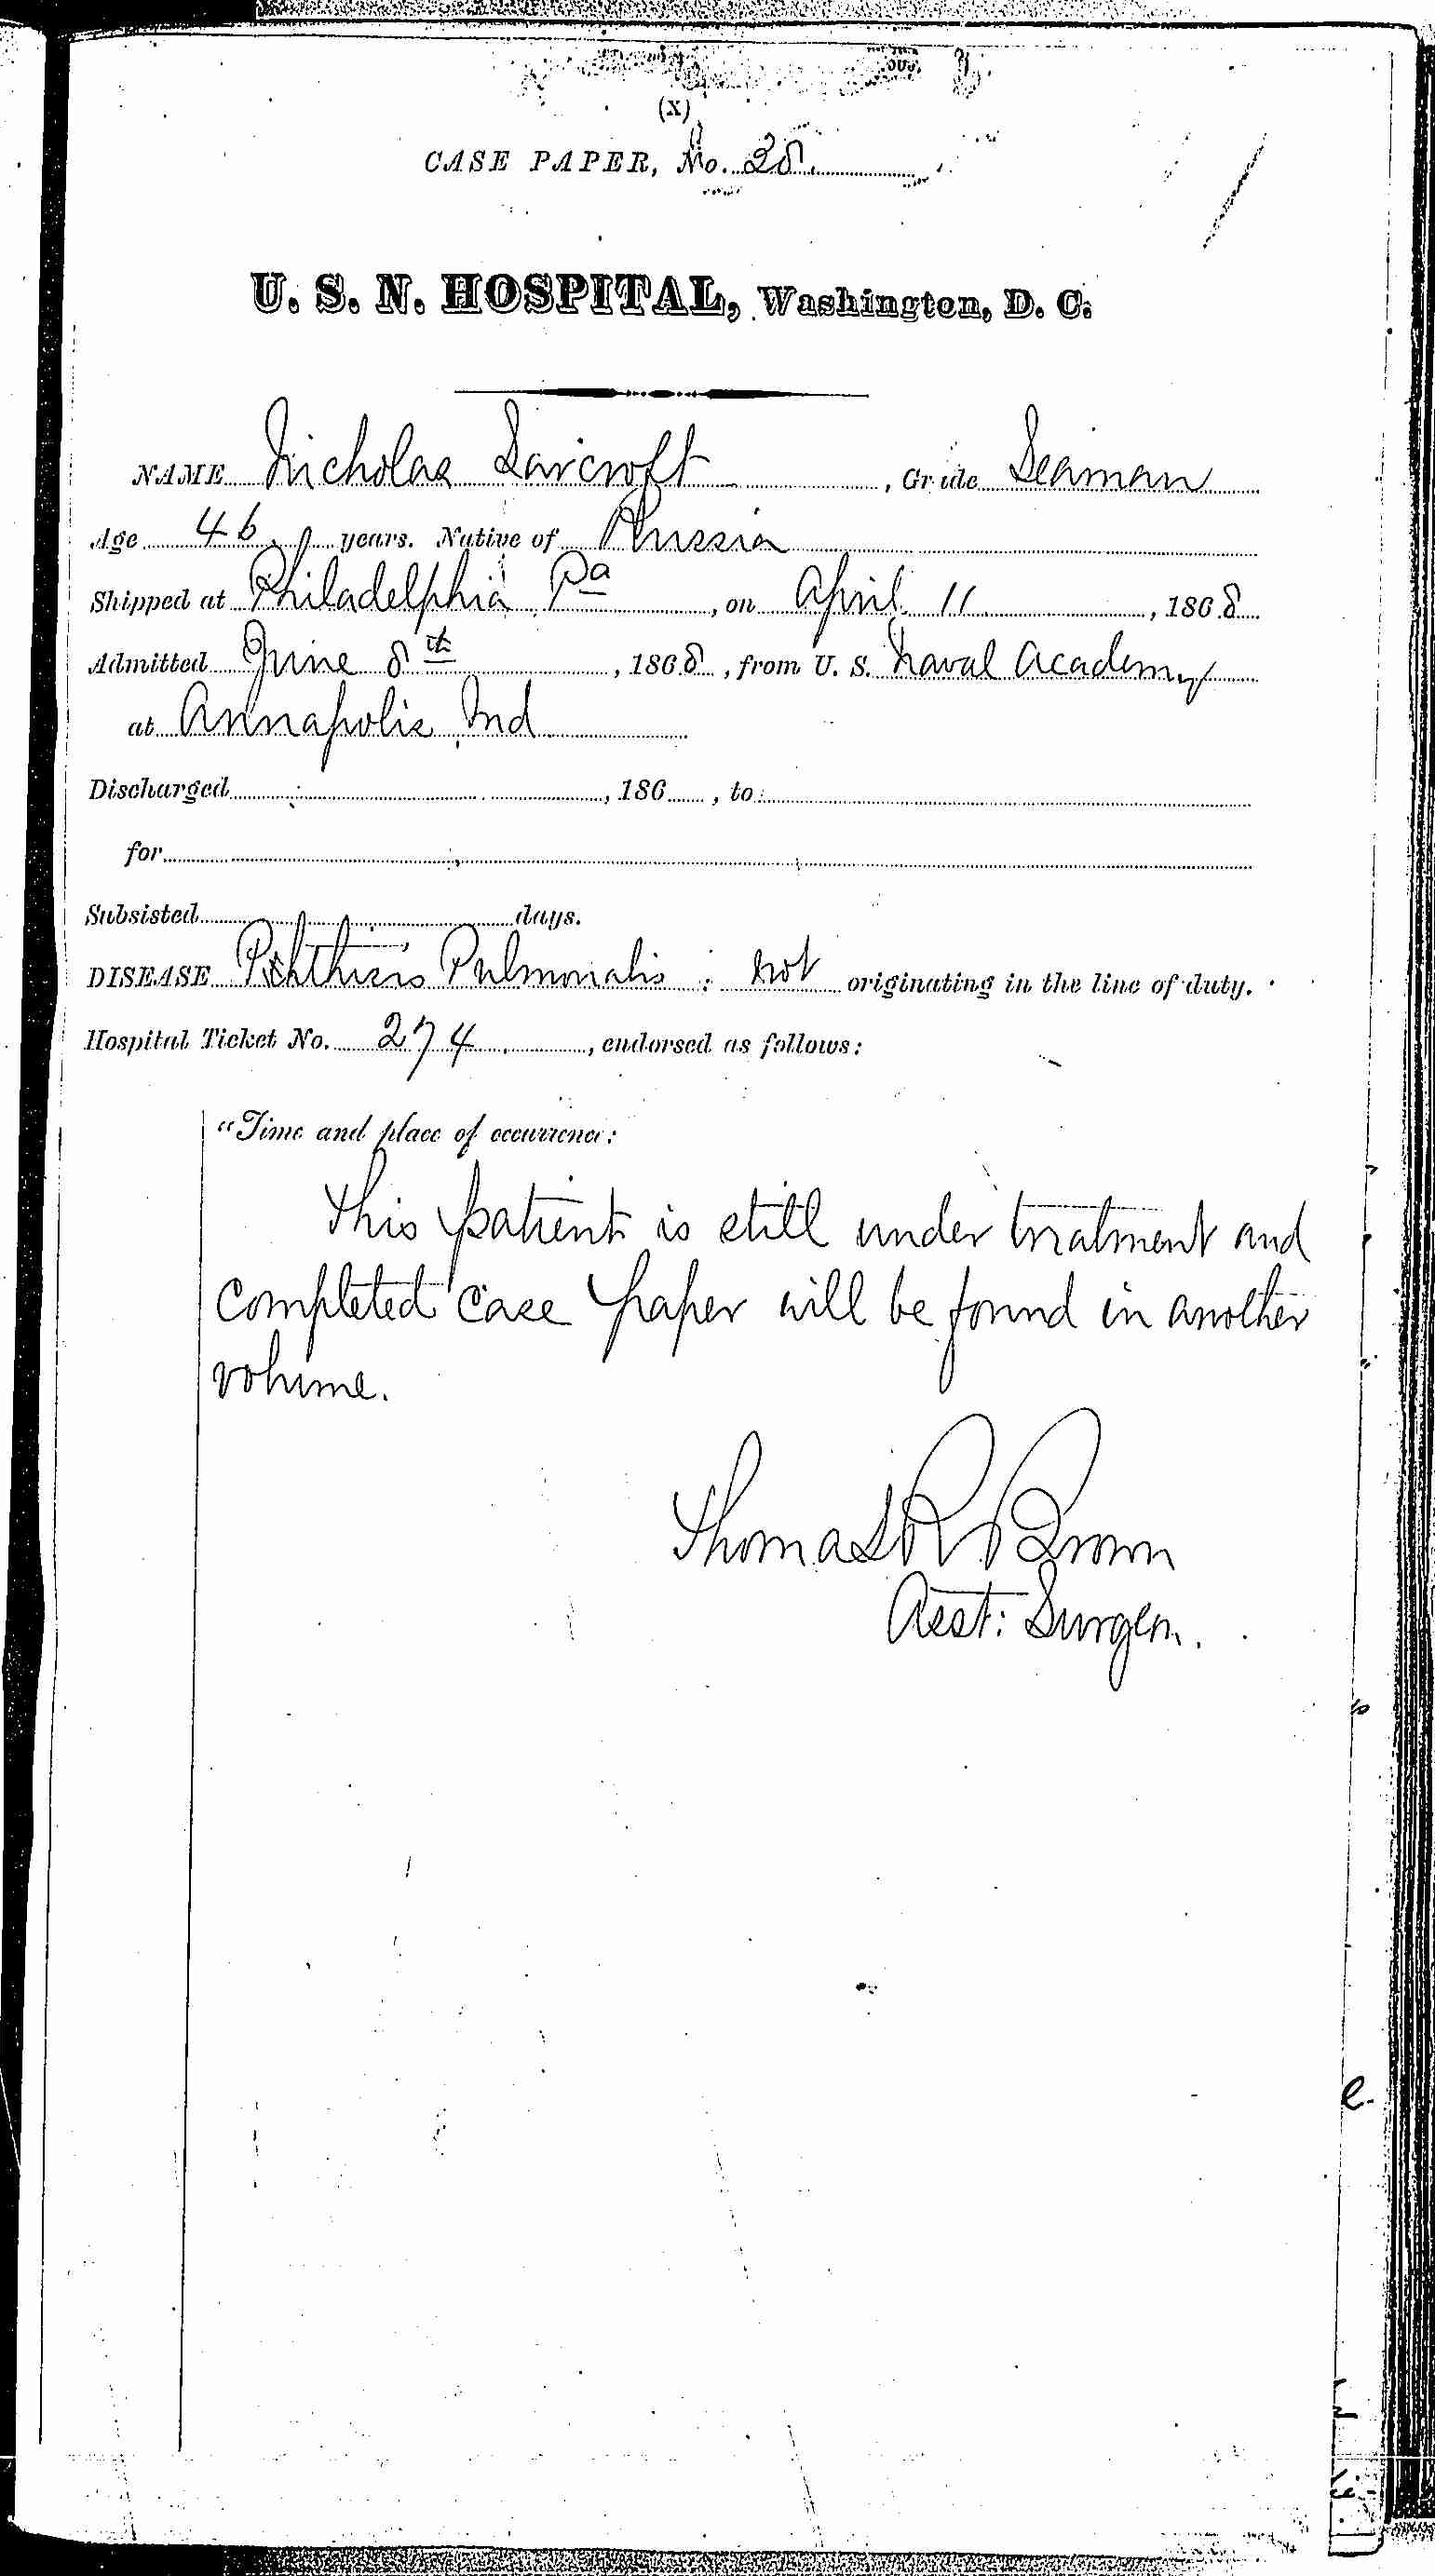 (X)
CASE PAPER, No. 28.
U. S. N. HOSPITAL, Washington, D. C.
NAME Nicholas Sarcroft, Grade Seaman
Age 46. years. Native of Russia
Shipped at Philadelphia Pa, on April 11, 1868
Admitted June 8th, 1868, from U. S. Naval Academy
at Annapolis, Md
Discharged, 186, to
for
Subsisted days.
DISEASE Phthisis Pulmonalis; not originating in the line of duty.
Hospital Ticket No. 274, endorsed as follows:
"Time and place of occurrence:
This patient is still under treatment and
completed case paper will be found in another
volume.
Thomas R Brown
Asst: Surgeon.